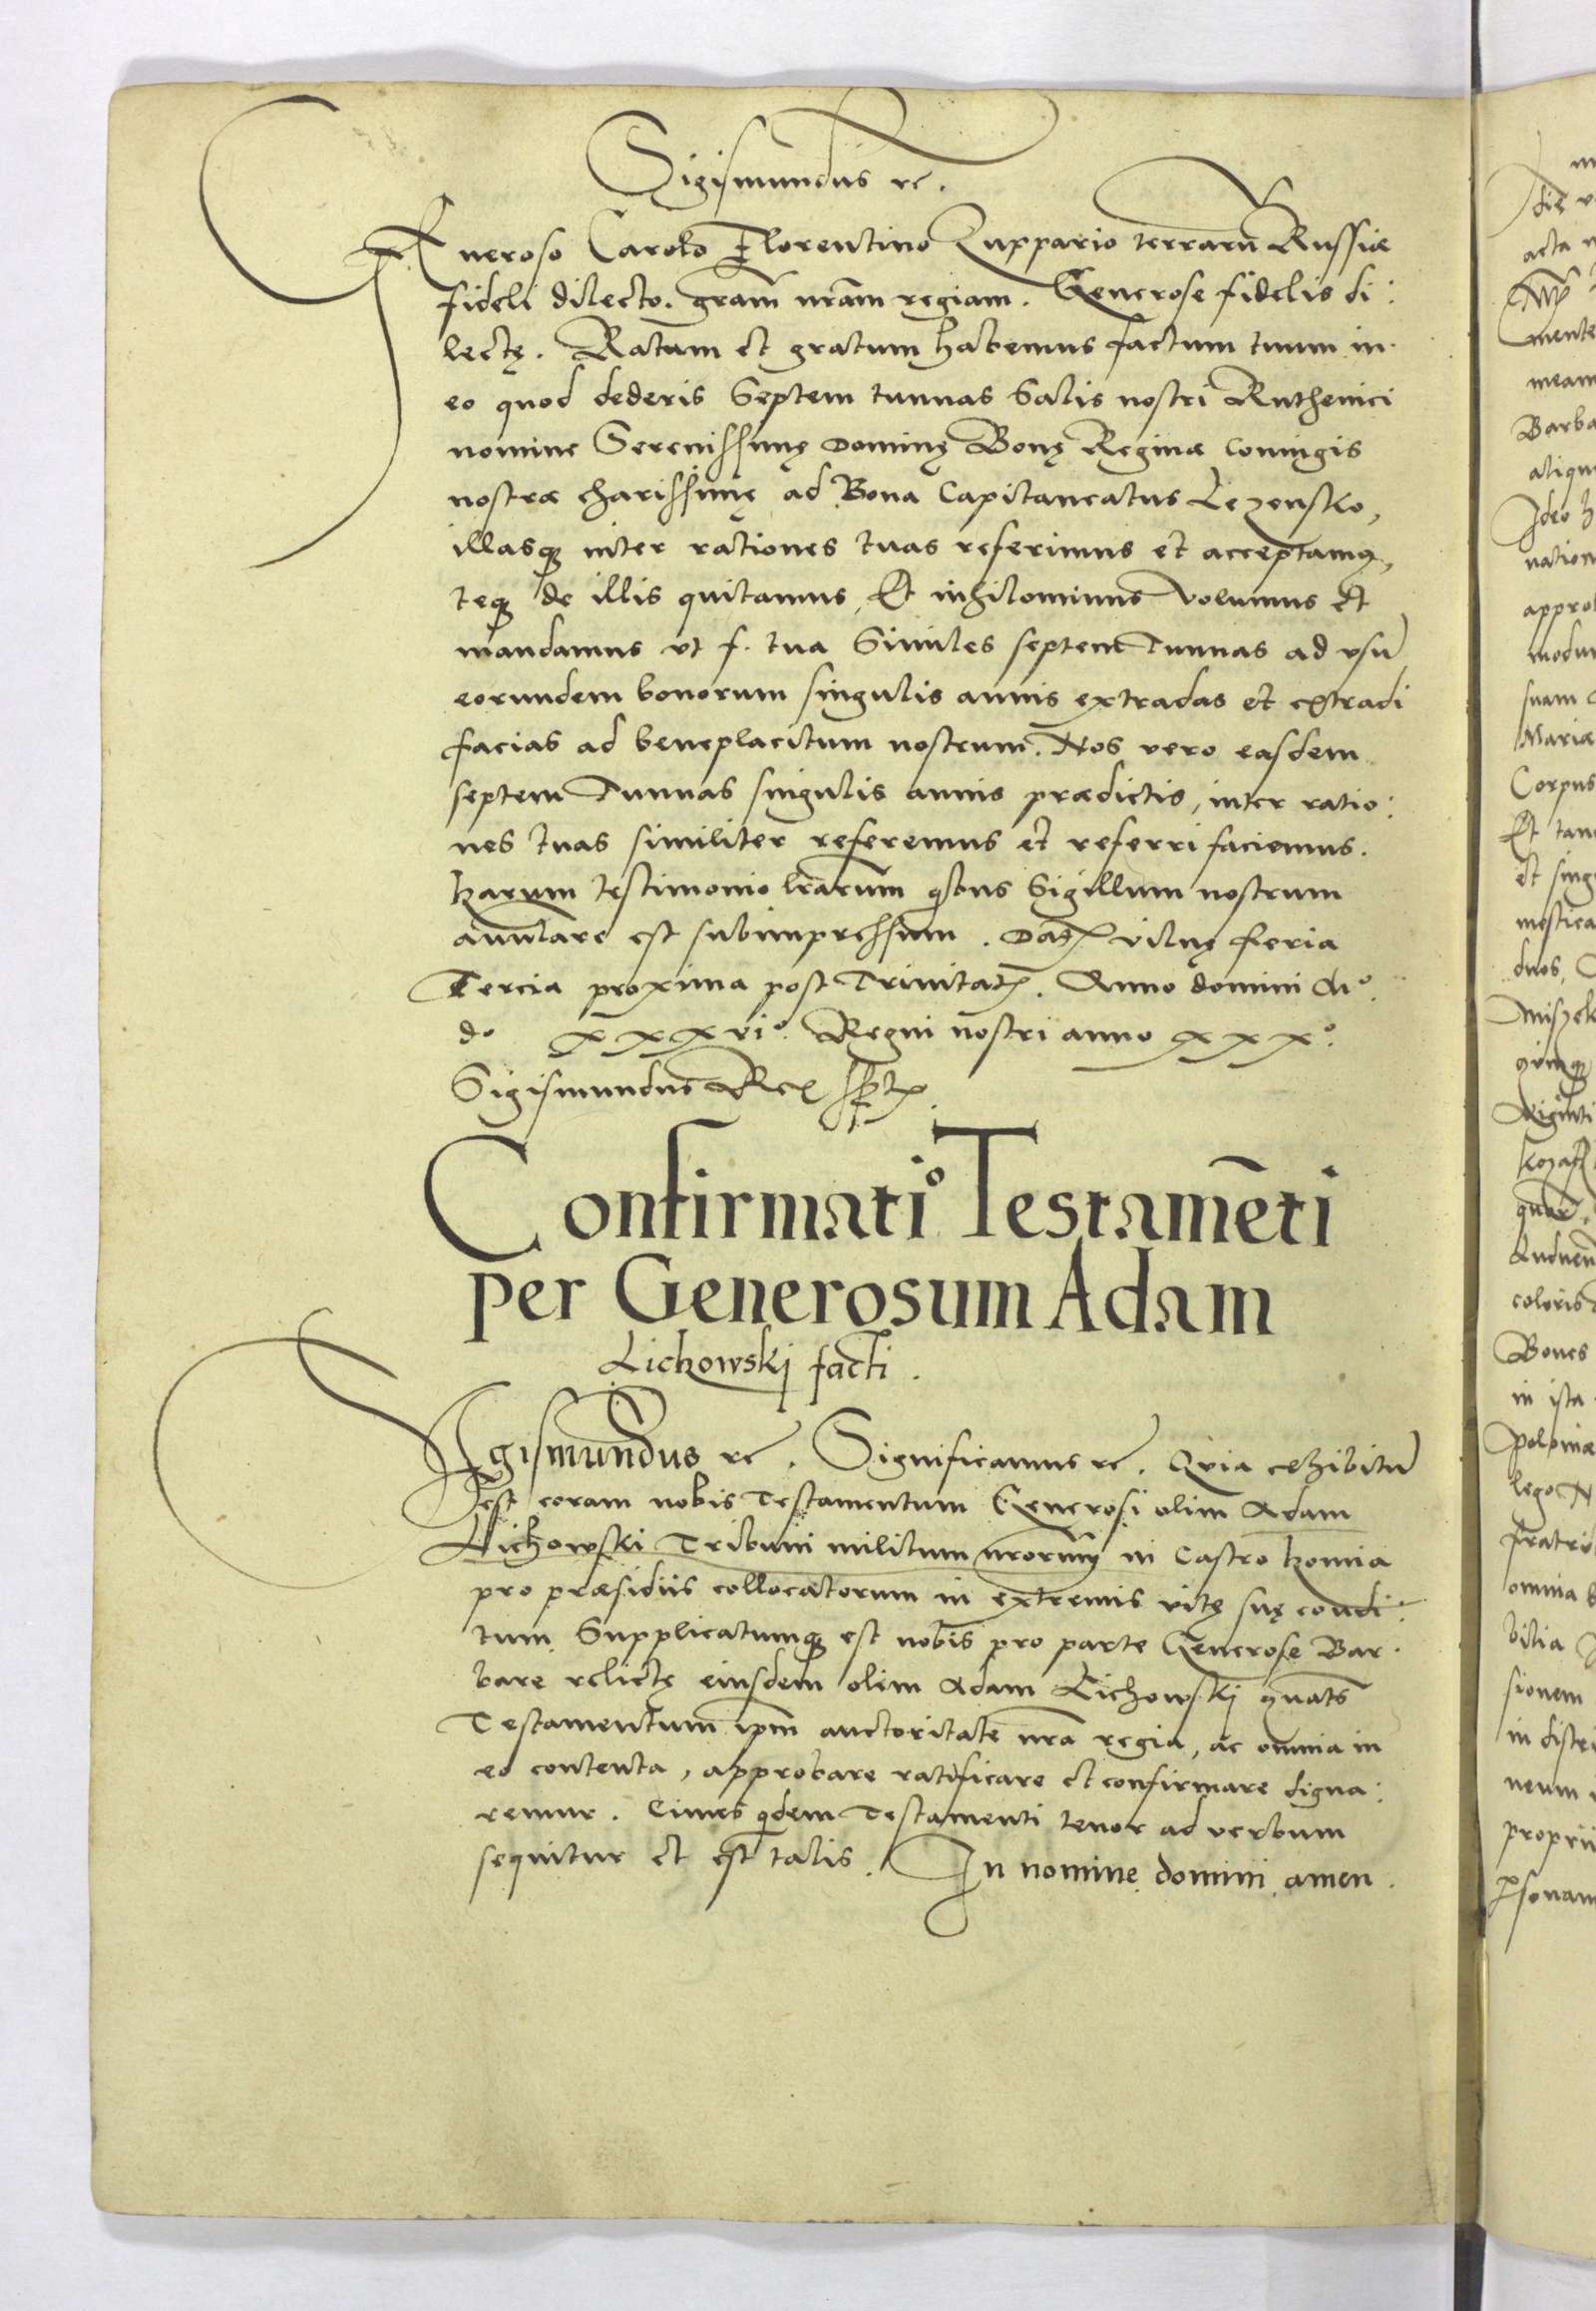 Sigismundus etc.
Generoso Carolo Florentino Zuppario terrarū Russiæ
fideli dilecto. gram̄ nram̄ regiam. Generose fidelis di:
lectę. Ratum et gratum habemus factum tuum in
eo quod dederis Septem tunnas Salis nostri Ruthenici
nomine Serenissimę Dominę Bonę Reginæ Coniugis
nostræ charissimę ad Bona Capitaneatus Lezensko,
illasq; inter rationes tuas referimus et acceptamꝰ,
teq; de illis quitamus, Et nihilominus volumus et
mandamus vt f. tua Similes septem Tunnas ad vsū
eorundem bonorum singulis annis extradas et extradi
facias ad beneplacitum nostrum. Nos vero easdem
septem Tunnas singulis annis prædictis, inter ratio:
nes tuas similiter referemus et referri faciemus.
harum testimonio lrarum̄ qibus Sigillum nostrum
annulare est subimpressum. Datꝭ vilnę feria
Tercia proxima post Trinitatꝭ. Anno domini Mo.
do xxxvio. Regni nostri anno xxxo.
Sigismundus Rex sptꝭ
Confirmatio Testamēti
per Generosum Adam
Lichowskj facti.
Sigismundus etc. Significamus etc. Quia exhibitū
est coram nobis Testamentum Generosi olim Adam
Lichowski Tribuni militum nrorum̄ in Castro homia
pro præsidiis collocatorum in extremis vitę suę condi:
tum. Supplicatumq; est nobis pro parte Generose Bar:
bare relictę eiusdem olim Adam Lichowskj qnats̄
Testamentum ipm̄ auctoritate nra regia, ac omnia in
eo contenta, approbare ratificare et confirmare digna:
remur. Cuius qidem Testamenti tenor ad verbum
sequitur et est talis. In nomine domini amen.